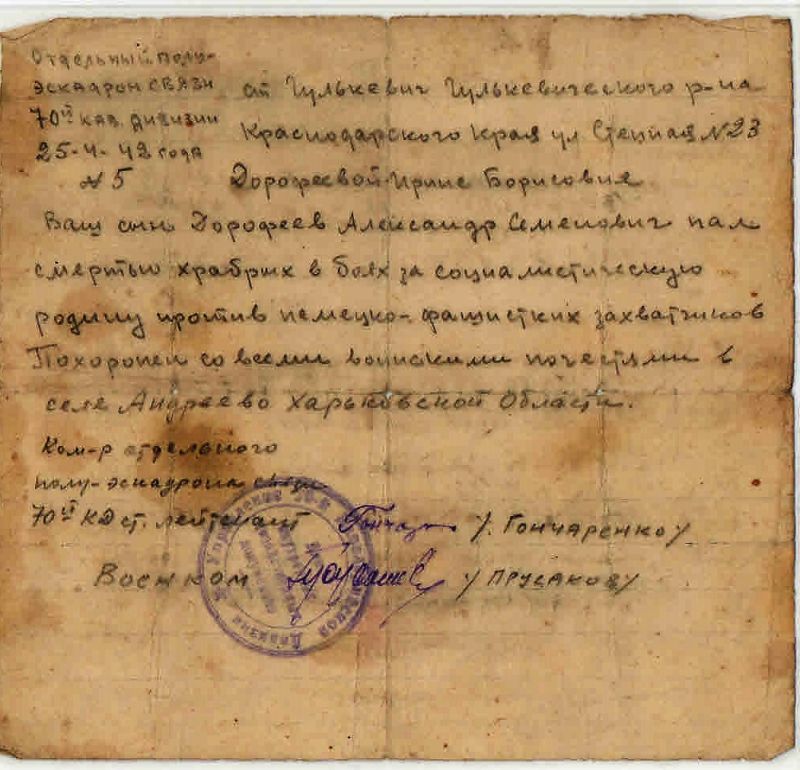 Отдельный полу-
эскадрон связи
70й кав. дивизии
25-4-42 года
N 5
ст Гулькевич Гулькевического р-на
Краснодарского Края ул Степная N 23
Дорофеевой Ирине Борисовне
Ваш сын Дорофеев Александр Семенович пал
смертью храбрых в боях за социалистическую
родину против немецко-фашистких захватчиков
Похоронен со всеми воискими почестями в
селе Андреево Харьковской Области.
Ком-р отдельного
полу-эскадрона связи
70й КД ст. лейтенант /. Гончаренко/
Военком / Прусаков/
Управление 70-й Кавалерийской Дивизии